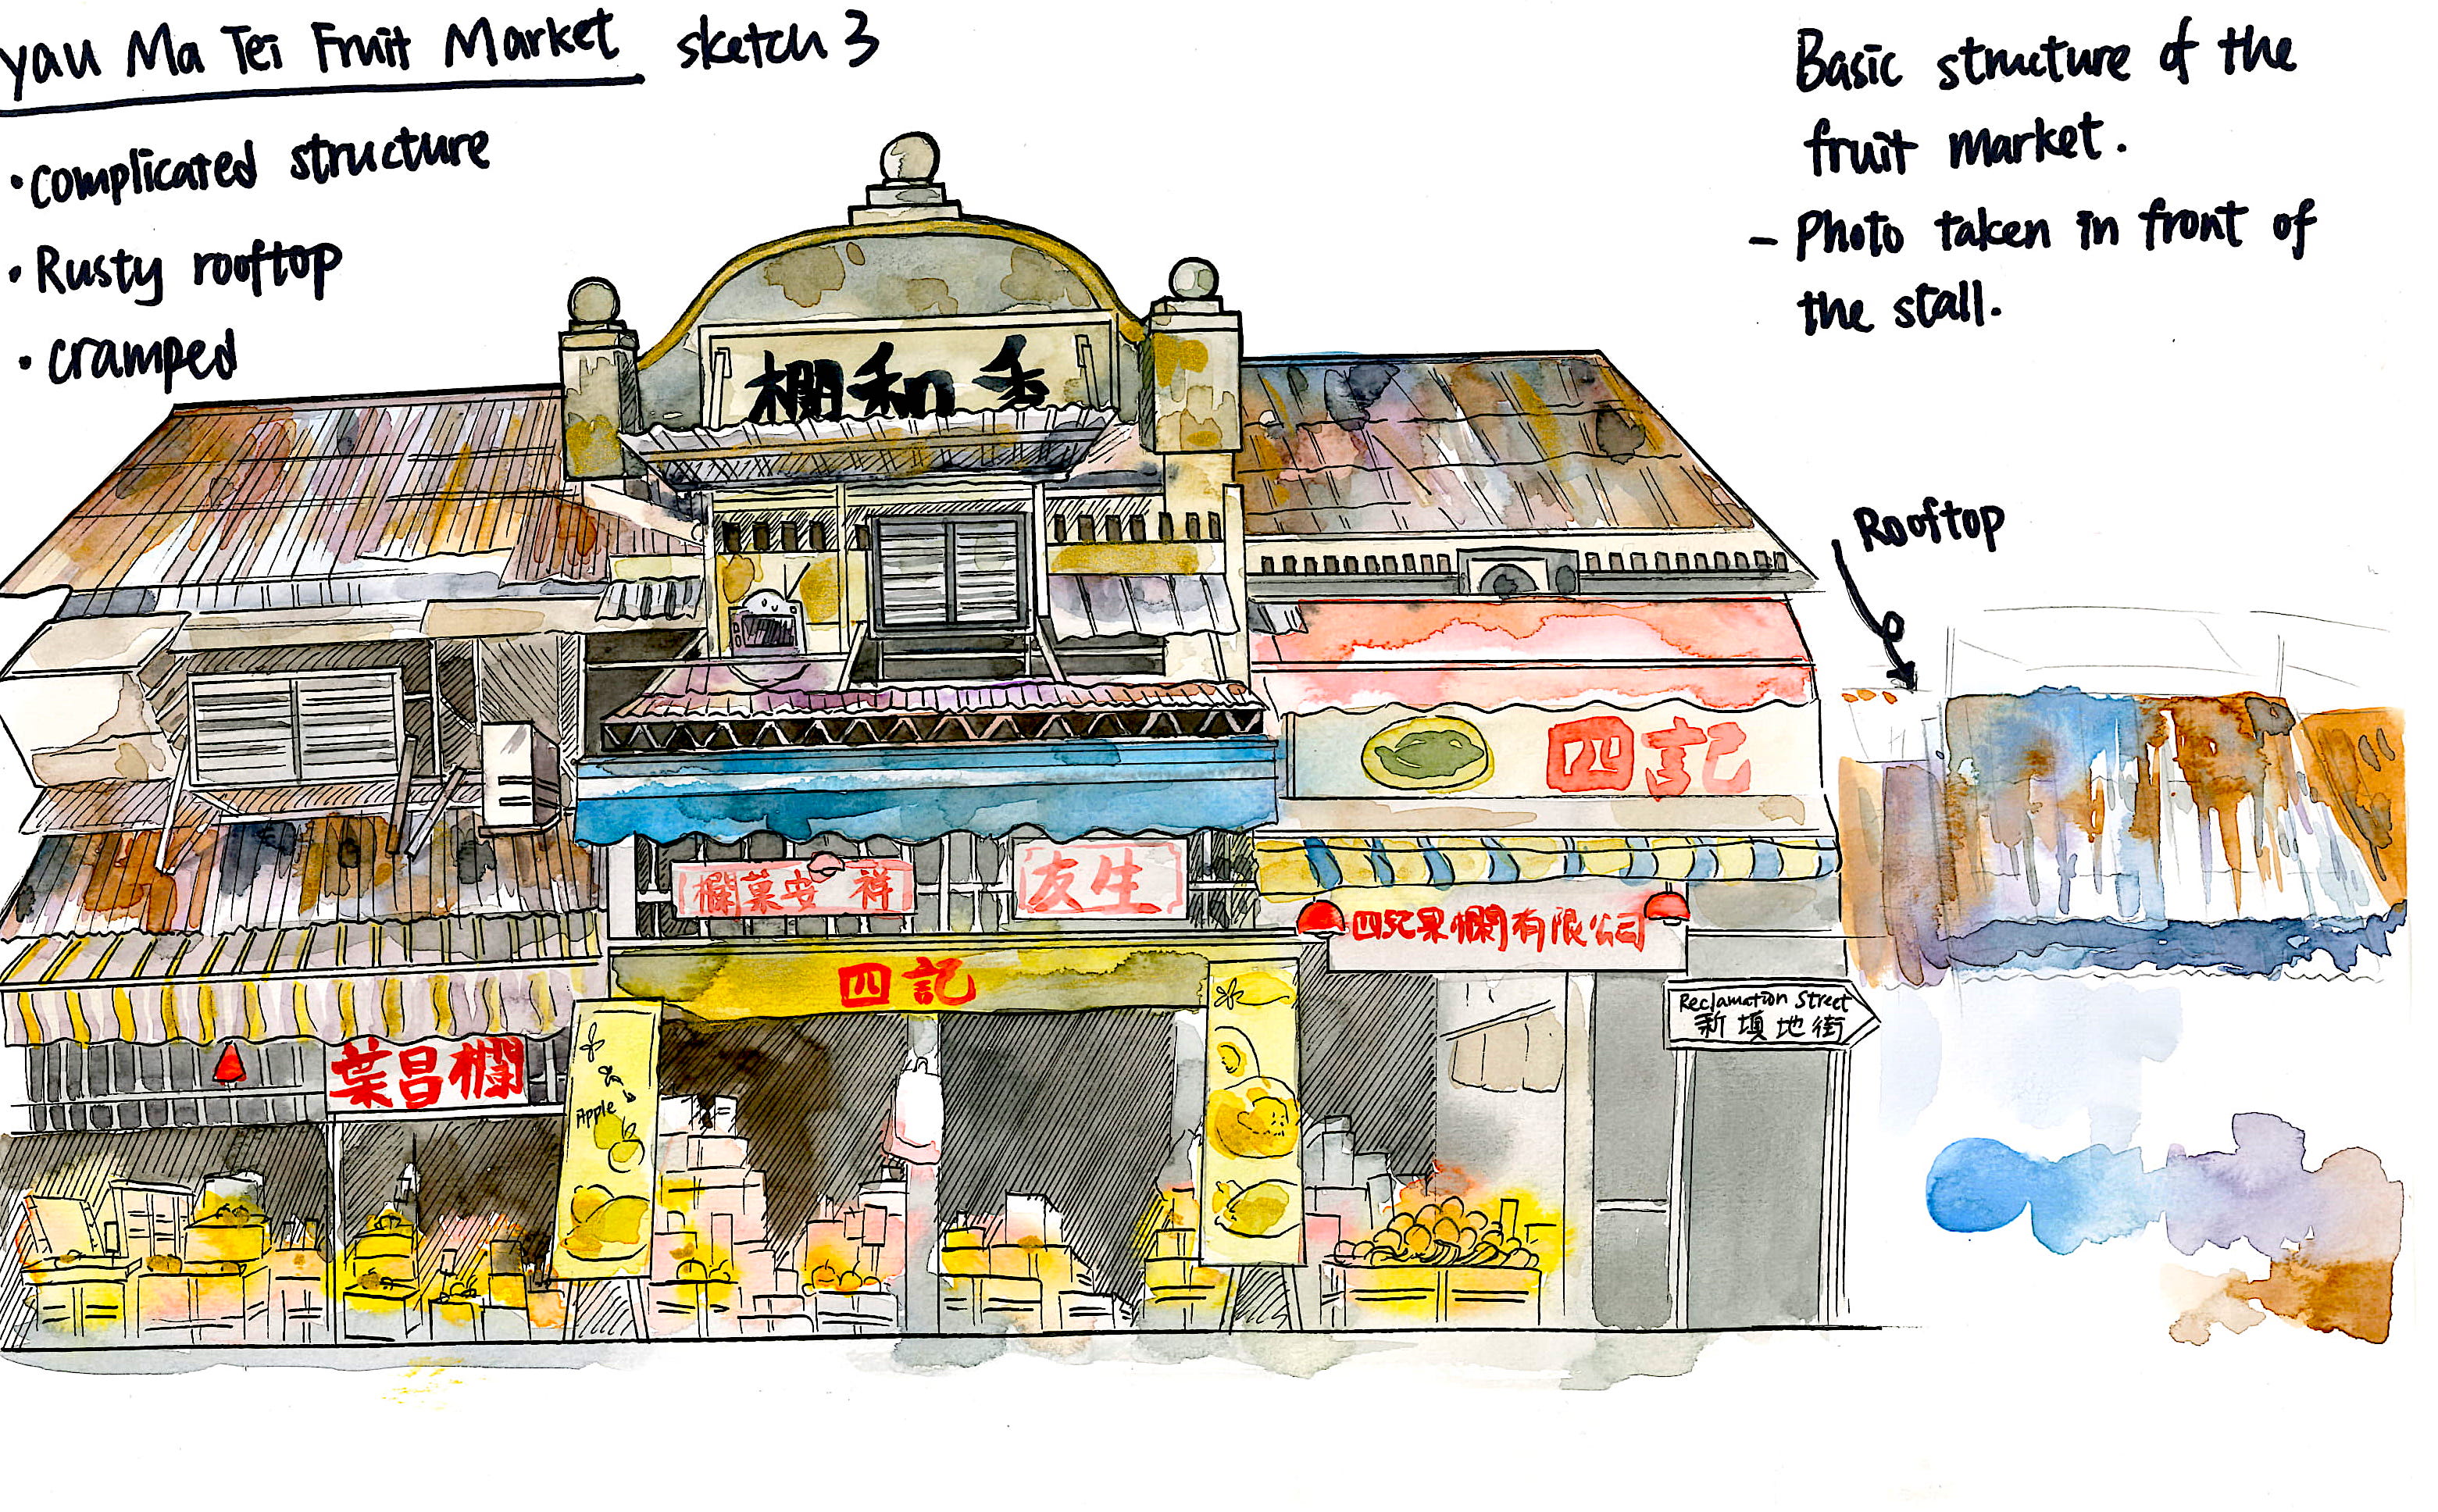 Yau Ma Tei Fruit Market sketch 3
• complicated structure
• Rusty rooftop
• cramped
Basic structure of the
fruit market.
- Photo taken in front of
the stall.
Rooftop
欄和香
四記
欄菓安祥
友生
四兄果欄有限公司
四記
Reclamation Street
新填地街
葉昌欄
Apple